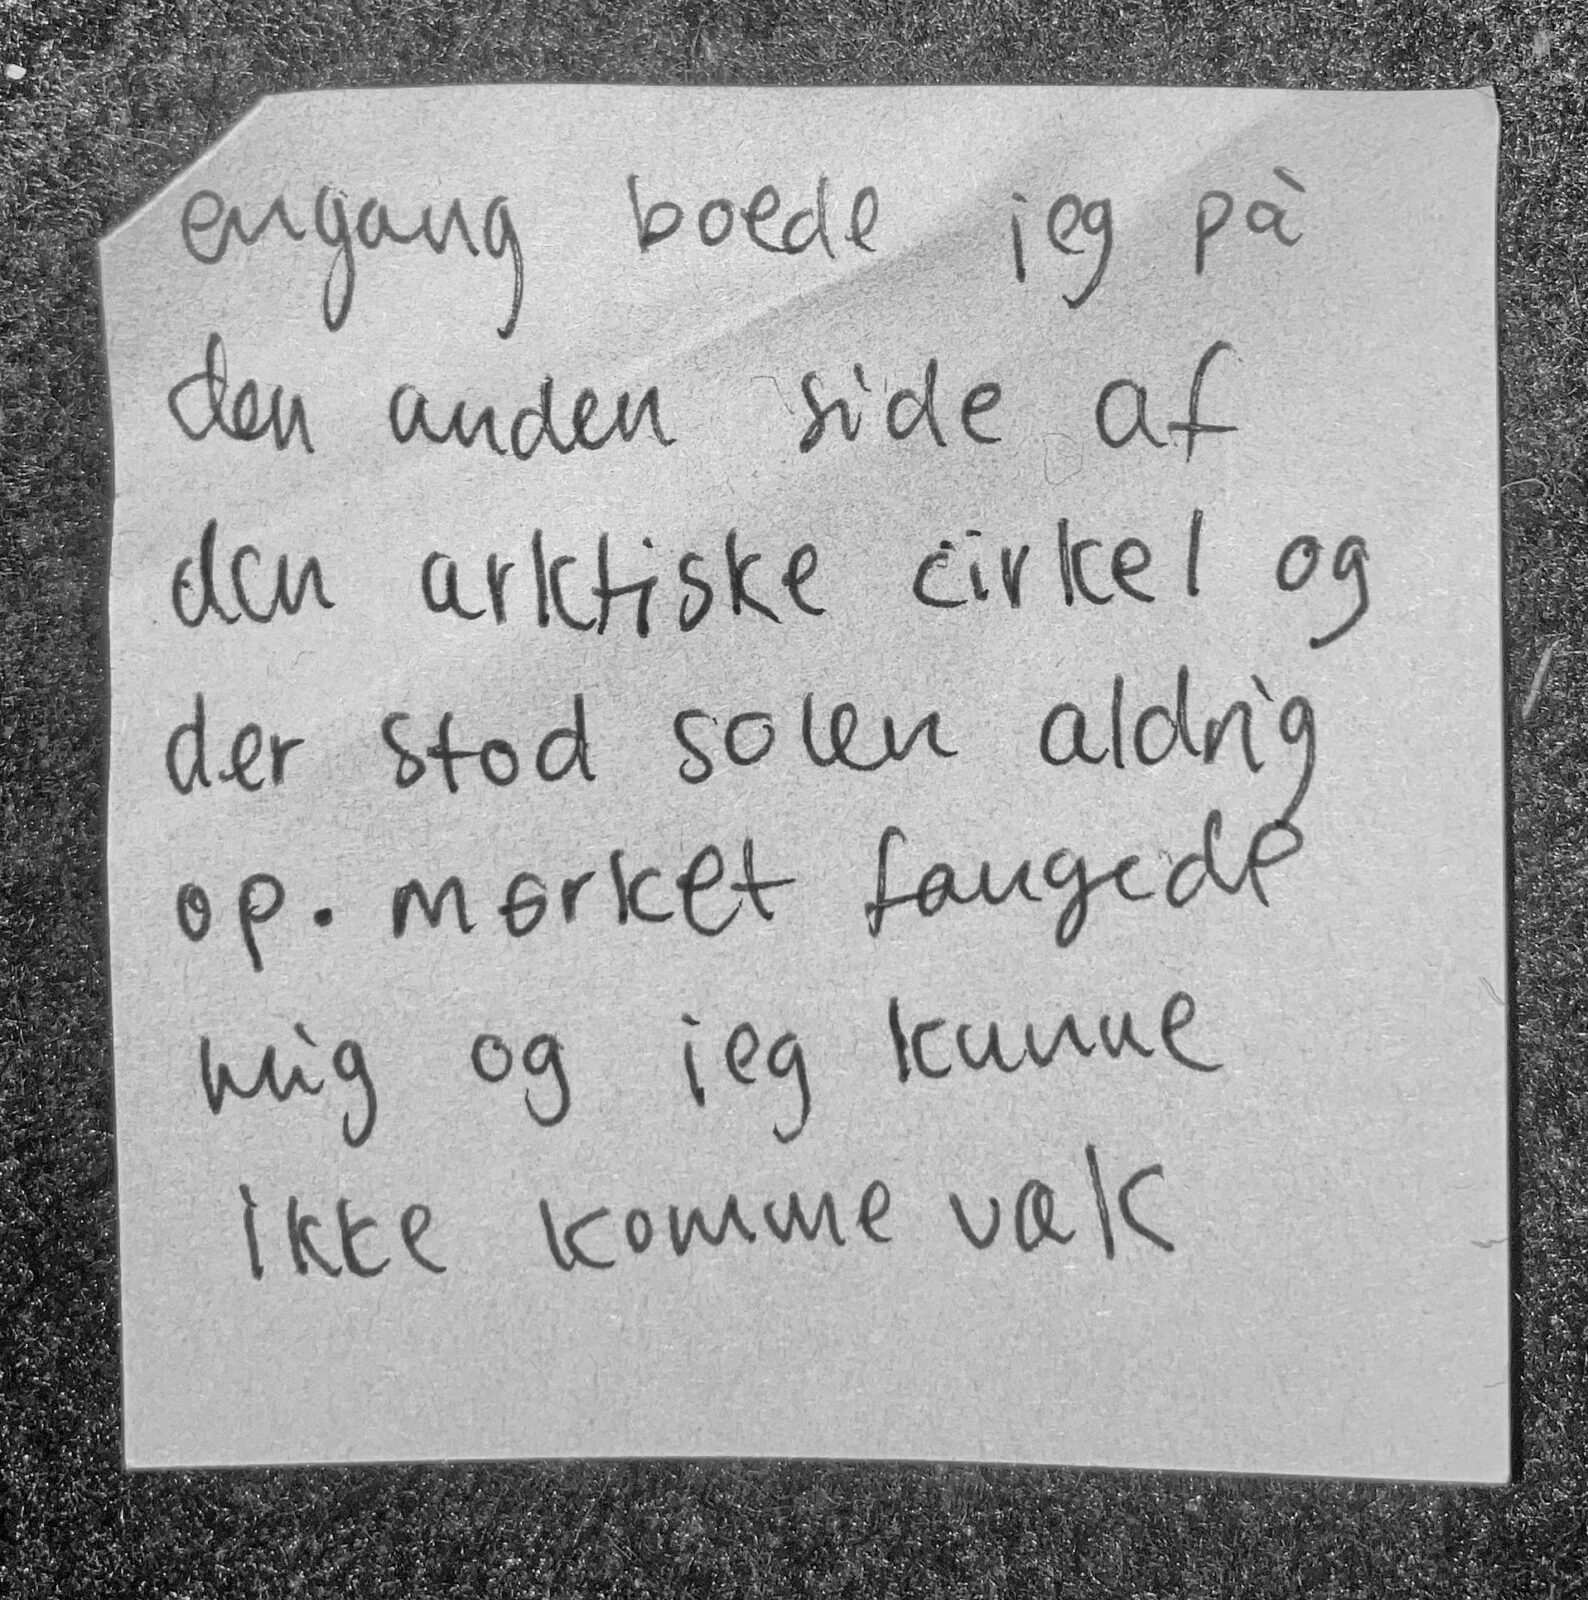 engang boede jeg på
den anden side af
den arktiske cirkel og
der stod solen aldrig
op. mørket fangede
mig og jeg kunne
ikke komme væk